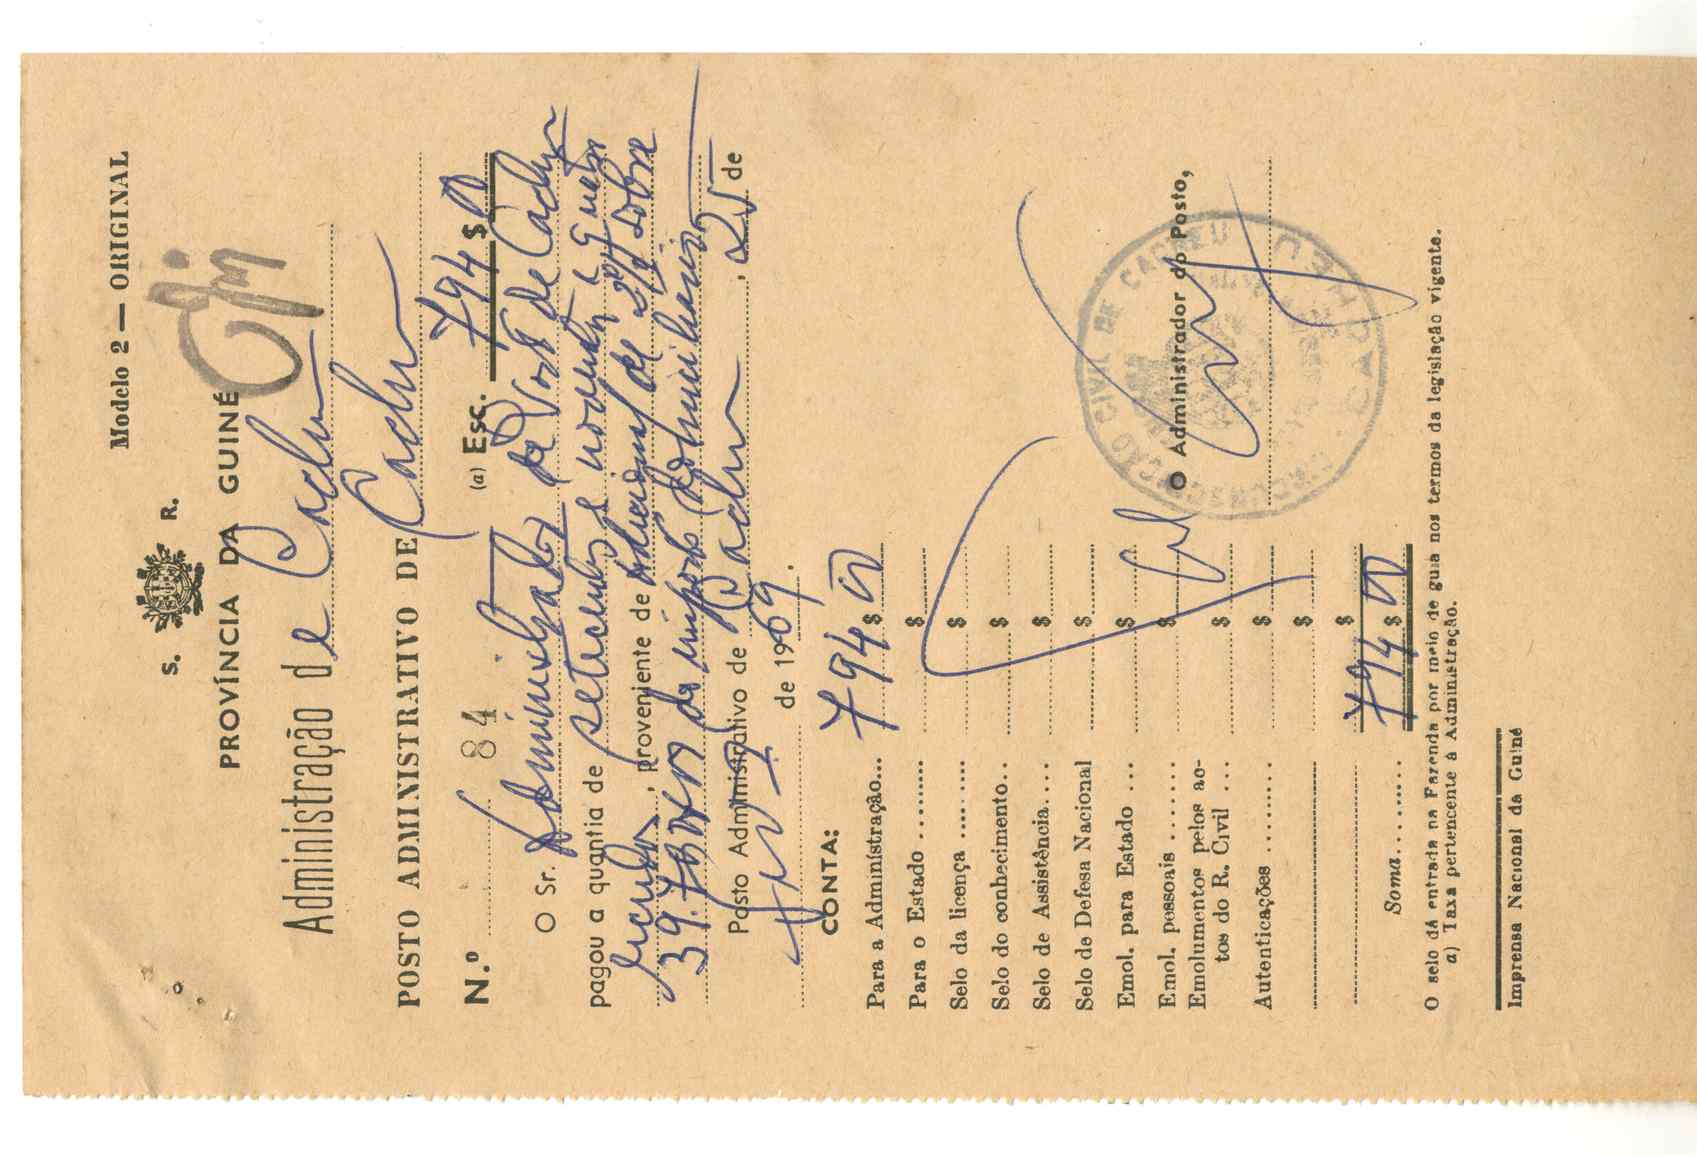 Modelo 2 — ORIGINAL
S. R.
PROVÍNCIA DA GUINÉ
Administração de Cacheu
POSTO ADMINISTRATIVO DE Cacheu
N.º 84 (a) Esc. 794$00
O Sr. Administrador do Posto de Cacheu
pagou a quantia de setecentos e noventa e quatro
escudos, proveniente de adicional de 2% sobre
39.700$00 do imposto domiciliário
Posto Administrativo de Cacheu, 25 de
de 1969.
CONTA:
Para a Administração... 794$00
Para o Estado ........ $
Selo da licença ........ $
Selo do conhecimento.. $
Selo de Assistência.... $
Selo de Defesa Nacional $
Emol. para Estado ... $
Emol. pessoais ....... $
Emolumentos pelos ac-
tos do R. Civil ... $
Autenticações ........ $
$
$
Soma........ 794$00
O Administrador do Posto,
CIRCUNSCRIÇÃO CIVIL DE CACHEU
CACHEU
O selo dá entrada na Fazenda por meio de guia nos termos da legislação vigente.
a) Taxa pertencente à Administração.
Imprensa Nacional da Guiné